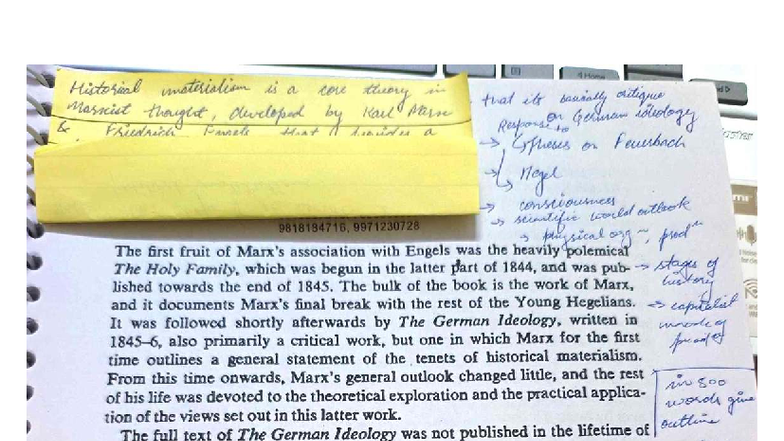 Historical materialism is a core theory in
Marxist thought, developed by Karl Marx
& Friedrich Engels that provides a
that its basically critique
or German ideology
Response to
Theses on Feuerbach
Hegel
consciousness
scientific world outlook
physical org~, prodⁿ
stages of
history
capitalist
mode of
prodⁿ
in 500
words give
outline
9818194716, 9971230728
The first fruit of Marx's association with Engels was the heavily polemical
The Holy Family, which was begun in the latter part of 1844, and was pub-
lished towards the end of 1845. The bulk of the book is the work of Marx,
and it documents Marx's final break with the rest of the Young Hegelians.
It was followed shortly afterwards by The German Ideology, written in
1845–6, also primarily a critical work, but one in which Marx for the first
time outlines a general statement of the tenets of historical materialism.
From this time onwards, Marx's general outlook changed little, and the rest
of his life was devoted to the theoretical exploration and the practical applica-
tion of the views set out in this latter work.
The full text of The German Ideology was not published in the lifetime of
Home